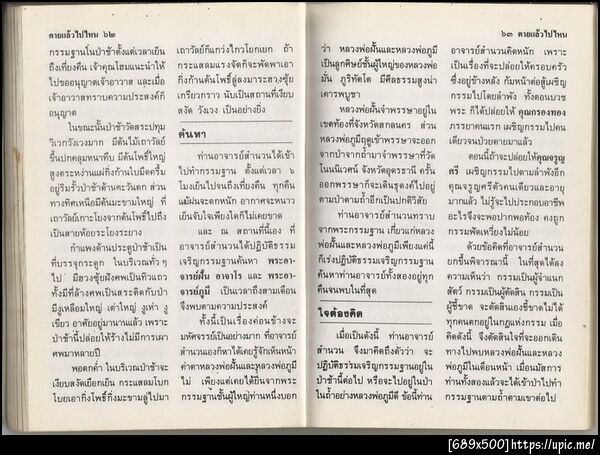 ตายแล้วไปไหน ๖๒
กรรมฐานในป่าช้าตั้งแต่เวลาเย็น
ถึงเที่ยงคืน เจ้าคุณโฮมแนะนำให้
ไปขออนุญาตเจ้าอาวาส และเมื่อ
เจ้าอาวาสทราบความประสงค์ก็
อนุญาต
ในขณะนั้นป่าช้าวัดสระปทุม
วิเวกวังเวงมาก มีต้นไม้เถาวัลย์
ขึ้นปกคลุมหนาทึบ มีต้นโพธิ์ใหญ่
สูงตระหง่านแผ่กิ่งก้านใบมืดครึ้ม
อยู่ริมรั้วป่าช้าด้านตะวันตก ส่วน
ทางทิศเหนือมีต้นมะขามใหญ่ ที่
เถาวัลย์เกาะโยงจากต้นโพธิ์ไปถึง
เป็นสายห้อยระโยงระยาง
กำแพงด้านประตูป่าช้าเป็น
ที่บรรจุกระดูก ในบริเวณทั่ว ๆ
ไป มีฮวงซุ้ยฝังศพเป็นทิวแถว
ทั้งมีที่ล้างศพเป็นสระติดกับป่าช้า
มีงูเหลือมใหญ่ เต่าใหญ่ งูเห่า งู
เขียว อาศัยอยู่มานานแล้ว เพราะ
ป่าช้านี้ปล่อยให้ร้างไม่มีการเผา
ศพมาหลายปี
พอตกค่ำ ในบริเวณป่าช้าจะ
เงียบสงัดเยือกเย็น กระแสลมโบก
โบยเอากิ่งโพธิ์กิ่งมะขามลู่ไปมา
เถาวัลย์ก็แกว่งไกวโยกเยก ถ้า
กระแสลมแรงจัดก็จะพัดพาเอา
กิ่งก้านต้นโพธิ์ลู่ลงมาระฮวงซุ้ย
เกรียวกราว นับเป็นสถานที่เงียบ
สงัด วังเวง เป็นอย่างยิ่ง
ค้นหา
ท่านอาจารย์สำนวนได้เข้า
ไปทำกรรมฐาน ตั้งแต่เวลา ๖
โมงเย็นไปจนถึงเที่ยงคืน ทุกคืน
แม้ฝนจะตกหนัก อากาศจะหนาว
เย็นจับใจเพียงใดก็ไม่เคยขาด
และ ณ สถานที่นี้เอง ที่
อาจารย์สำนวนได้ปฏิบัติธรรม
เจริญกรรมฐานค้นหา พระอา-
จารย์ฝั้น อาจาโร และ พระอา-
จารย์ภูมี เป็นเวลาถึงสามเดือน
จึงพบตามความประสงค์
ทั้งนี้เป็นเรื่องค่อนข้างจะ
มหัศจรรย์เป็นอย่างมาก ที่อาจารย์
สำนวนเองก็หาได้เคยรู้จักเห็นหน้า
ค่าตาหลวงพ่อฝั้นและหลวงพ่อภูมี
ไม่ เพียงแต่เคยได้ยินจากพระ
กรรมฐานชั้นผู้ใหญ่ท่านหนึ่งบอก
๖๓ ตายแล้วไปไหน
ว่า หลวงพ่อฝั้นและหลวงพ่อภูมี
เป็นลูกศิษย์ชั้นผู้ใหญ่ของหลวงพ่อ
มั่น ภูริทัตโต มีศีลธรรมสูงน่า
เคารพบูชา
หลวงพ่อฝั้นจำพรรษาอยู่ใน
เขตท้องที่จังหวัดสกลนคร ส่วน
หลวงพ่อภูมีฤดูเข้าพรรษาจะออก
จากป่าจากถ้ำมาจำพรรษาที่วัด
โนนนิเวศน์ จังหวัดอุดรธานี ครั้น
ออกพรรษาก็จะเดินธุดงค์ไปอยู่
ตามป่าตามถ้ำอีกเป็นปกติวิสัย
ท่านอาจารย์สำนวนทราบ
จากพระกรรมฐาน เกี่ยวแก่หลวง
พ่อฝั้นและหลวงพ่อภูมีเพียงแค่นี้
ก็เร่งปฏิบัติธรรมเจริญกรรมฐาน
ค้นหาท่านอาจารย์ทั้งสองอยู่ทุก
คืนจนพบในที่สุด
ใจต้องคิด
เมื่อเป็นดังนี้ ท่านอาจารย์
สำนวน จึงมาคิดถึงตัวว่า จะ
ปฏิบัติธรรมเจริญกรรมฐานอยู่ใน
ป่าช้านี้ต่อไป หรือจะไปอยู่ในป่า
ในถ้ำอย่างหลวงพ่อภูมีดี ข้อนี้ท่าน
อาจารย์สำนวนคิดหนัก เพราะ
เป็นเรื่องที่จะปล่อยให้ครอบครัว
ซึ่งอยู่ข้างหลัง ก้มหน้าต่อสู้เผชิญ
กรรมไปโดยลำพัง ทั้งตอนบวช
พระ ก็ได้ปล่อยให้ คุณกรองทอง
ภรรยาคนแรก เผชิญกรรมไปคน
เดียวจนป่วยตายมาแล้ว
ตอนนี้ถ้าจะปล่อยให้คุณจรูญ
ศรี เผชิญกรรมไปตามลำพังอีก
คุณจรูญศรีตัวคนเดียวและอายุ
มากแล้ว ไม่รู้จะไปประกอบอาชีพ
อะไรจึงจะพอปากพอท้อง คงถูก
กรรมพัดเหวี่ยงไม่น้อย
ด้วยข้อคิดที่อาจารย์สำนวน
ยกขึ้นพิจารณานี้ ในที่สุดได้ลง
ความเห็นว่า กรรมเป็นผู้จำแนก
สัตว์ กรรมเป็นผู้ตัดสิน กรรมเป็น
ผู้ชี้ขาด จะตัดสินเองชี้ขาดไม่ได้
ทุกคนตกอยู่ในกฎแห่งกรรม เมื่อ
คิดดังนี้ จึงตัดสินใจที่จะออกเดิน
ทางไปพบหลวงพ่อฝั้นและหลวง
พ่อภูมีในเดือนหน้า เมื่อนมัสการ
ท่านทั้งสองแล้วจะได้เข้าป่าไปทำ
กรรมฐานตามถ้ำตามเขาต่อไป
[689x500]https://upic.me/